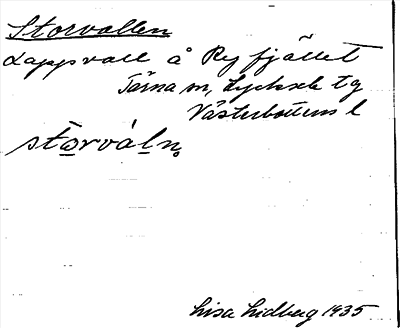 Storvallen
Lappvall å Ryfjället
Tärna sn, Lycksele tg
Västerbottens l
stọrvál̲n̥
Lisa Lidberg 1935